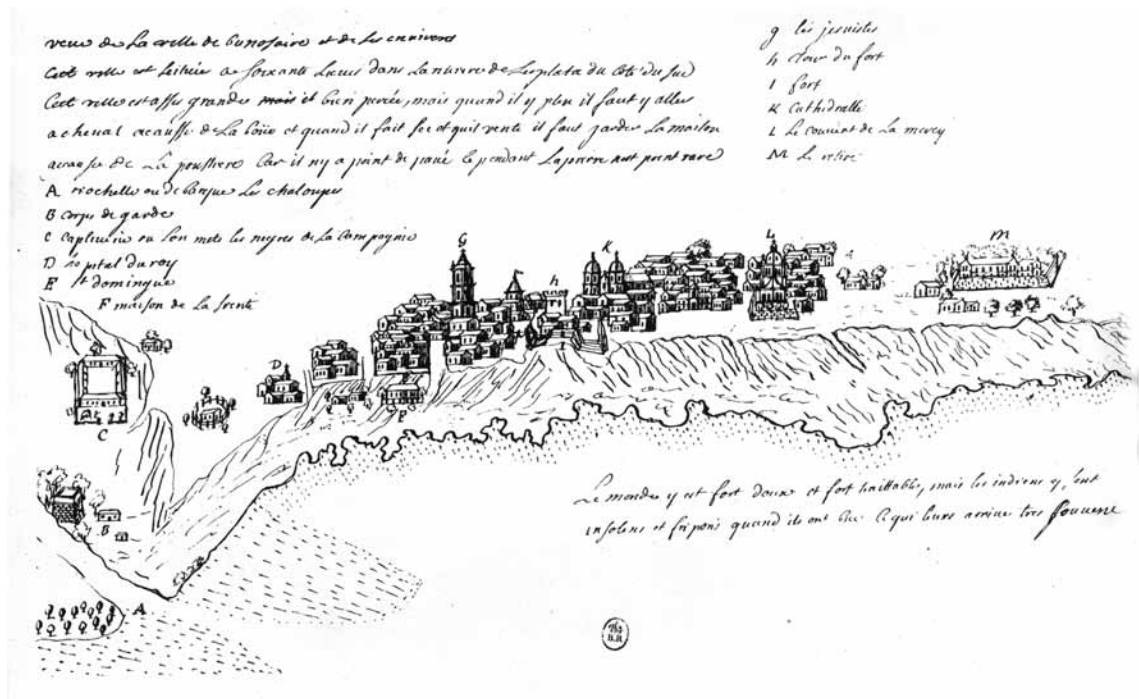 veue de La ville de bunosaire et de ses environs
Cett ville est scituée a soixante Lieues dans La riviere de Lesplata du Coté du sud
Cett ville est asses grande mais et bien percée, mais quand il y pleu il faut y aller
a cheval acausse de La boüe et quand il fait sec et quil vente il faut garder La maison
acause de La poussiere Car il ny a point de pavé Cependant La pierre nest point rare
A rochelle ou debarque Les chaloupes
B corps de garde
C Captiverie ou Lon mets les negres de La Compagnie
D hopital du roy
E st domingue
F maison de La
g les jesuistes
h Tour du fort
I fort
K Cathedralle
L Le couvent de La mercy
M Le retire
G
K
L
M
h
I
D
F
C
B
A
Le monde y est fort doux et fort haittable, mais les indiens y sont
insolens et fripons quand ils ont bu Ce qui leurs arrive tres souvent
B.R